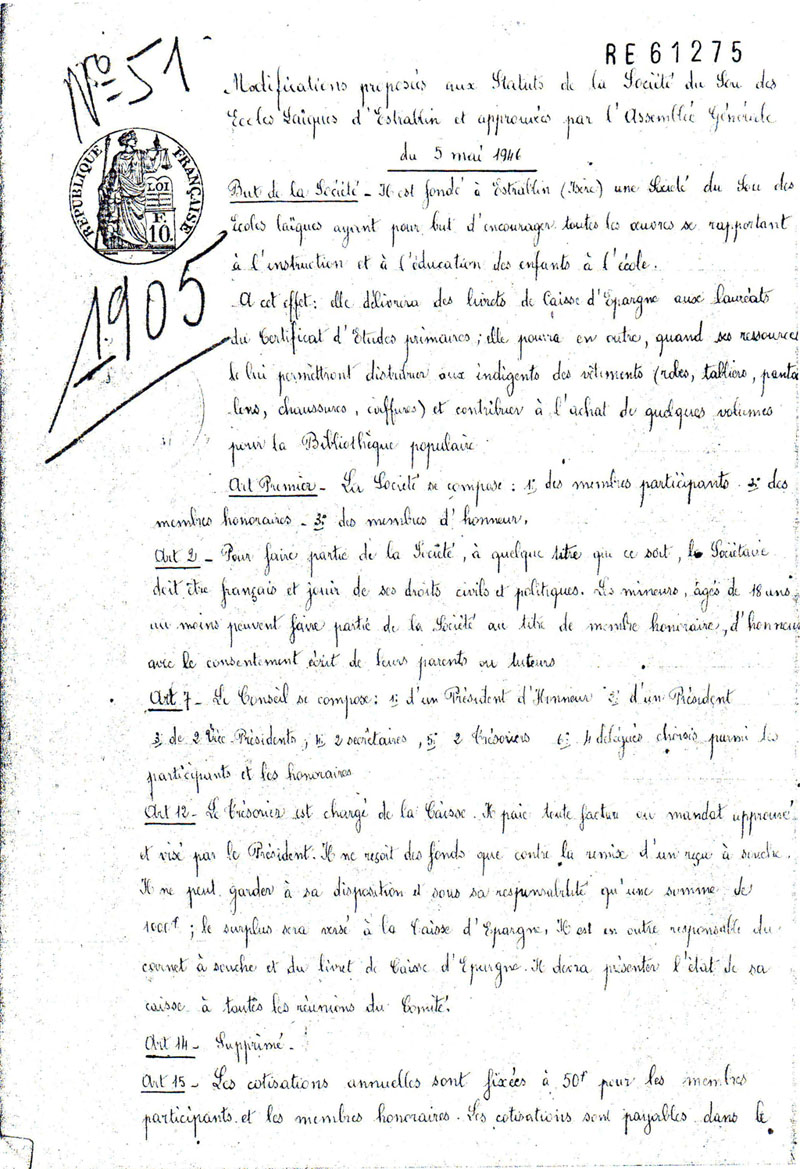 RE 61275
Nº 51
Modifications proposées aux Statuts de la Société du Sou des
Ecoles Laïques d'Estrablin et approuvées par l'Assemblée Générale
du 5 mai 1946
RÉPUBLIQUE FRANÇAISE
LOI
F.
10.
1905
But de la Société - Il est fondé à Estrablin (Isère) une Société du Sou des
Ecoles laïques ayant pour but d'encourager toutes les œuvres se rapportant
à l'instruction et à l'éducation des enfants à l'école.
A cet effet: elle délivrera des livrets de Caisse d'Epargne aux lauréats
du Certificat d'Etudes primaires; elle pourra en outre, quand ses ressources
le lui permettront distribuer aux indigents des vêtements (robes, tabliers, panta
lons, chaussures, coiffures) et contribuer à l'achat de quelques volumes
pour la Bibliothèque populaire
Art Premier - La Société se compose: 1º des membres participants. 2º des
membres honoraires - 3º des membres d'honneur.
Art 2 - Pour faire partie de la Société, à quelque titre que ce soit, le Sociétaire
doit être français et jouir de ses droits civils et politiques. Les mineurs, âgés de 18 ans
au moins peuvent faire partie de la Société au titre de membre honoraire, d'honneur
avec le consentement écrit de leurs parents ou tuteurs
Art 7 - Le Conseil se compose: 1º d'un Président d'Honneur 2º d'un Président
3º de 2 Vice-Présidents; 4º 2 secrétaires, 5º 2 Trésoriers 6º 4 délégués choisis parmi les
participants et les honoraires
Art 12 - Le Trésorier est chargé de la Caisse. Il paie toute facture ou mandat approuvé
et visé par le Président. Il ne reçoit des fonds que contre la remise d'un reçu à souche.
Il ne peut garder à sa disposition et sous sa responsabilité qu'une somme de
1000f; le surplus sera versé à la Caisse d'Epargne, Il est en outre responsable du
carnet à souche et du livret de Caisse d'Epargne. Il devra présenter l'état de sa
caisse à toutes les réunions du Comité.
Art 14 - Supprimé -
Art 15 - Les cotisations annuelles sont fixées à 50f pour les membres
participants et les membres honoraires. Les cotisations sont payables dans le